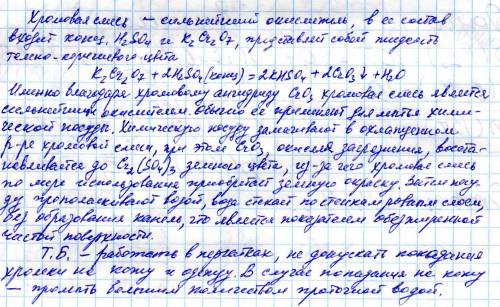 Хромовая смесь – сильнейший окислитель, в её состав
входит конц. H₂SO₄ и K₂Cr₂O₇, представляет собой жидкость
темно-коричневого цвета
K₂Cr₂O₇ + 2H₂SO₄(конц) = 2KHSO₄ + 2CrO₃↓ + H₂O
Именно благодаря хромовому ангидриду CrO₃ хромовая смесь является
сильнейшим окислителем. Обычно её применяют для мытья хими-
ческой посуды. Химическую посуду замачивают в охлажденном
р-ре хромовой смеси, при этом CrO₃, окисляя загрязнения, восста-
навливается до Cr₂(SO₄)₃ зеленого цвета, из-за чего хромовая смесь
по мере использования приобретает зеленую окраску. Затем посу-
ду прополаскивают водой, вода стекает по стенкам ровным слоем,
без образования капель, что является показателем обезжиренной
чистой поверхности.
Т.Б. – работать в перчатках, не допускать попадания
хромки на кожу и одежду. В случае попадания на кожу
– промыть большим количеством проточной водой.